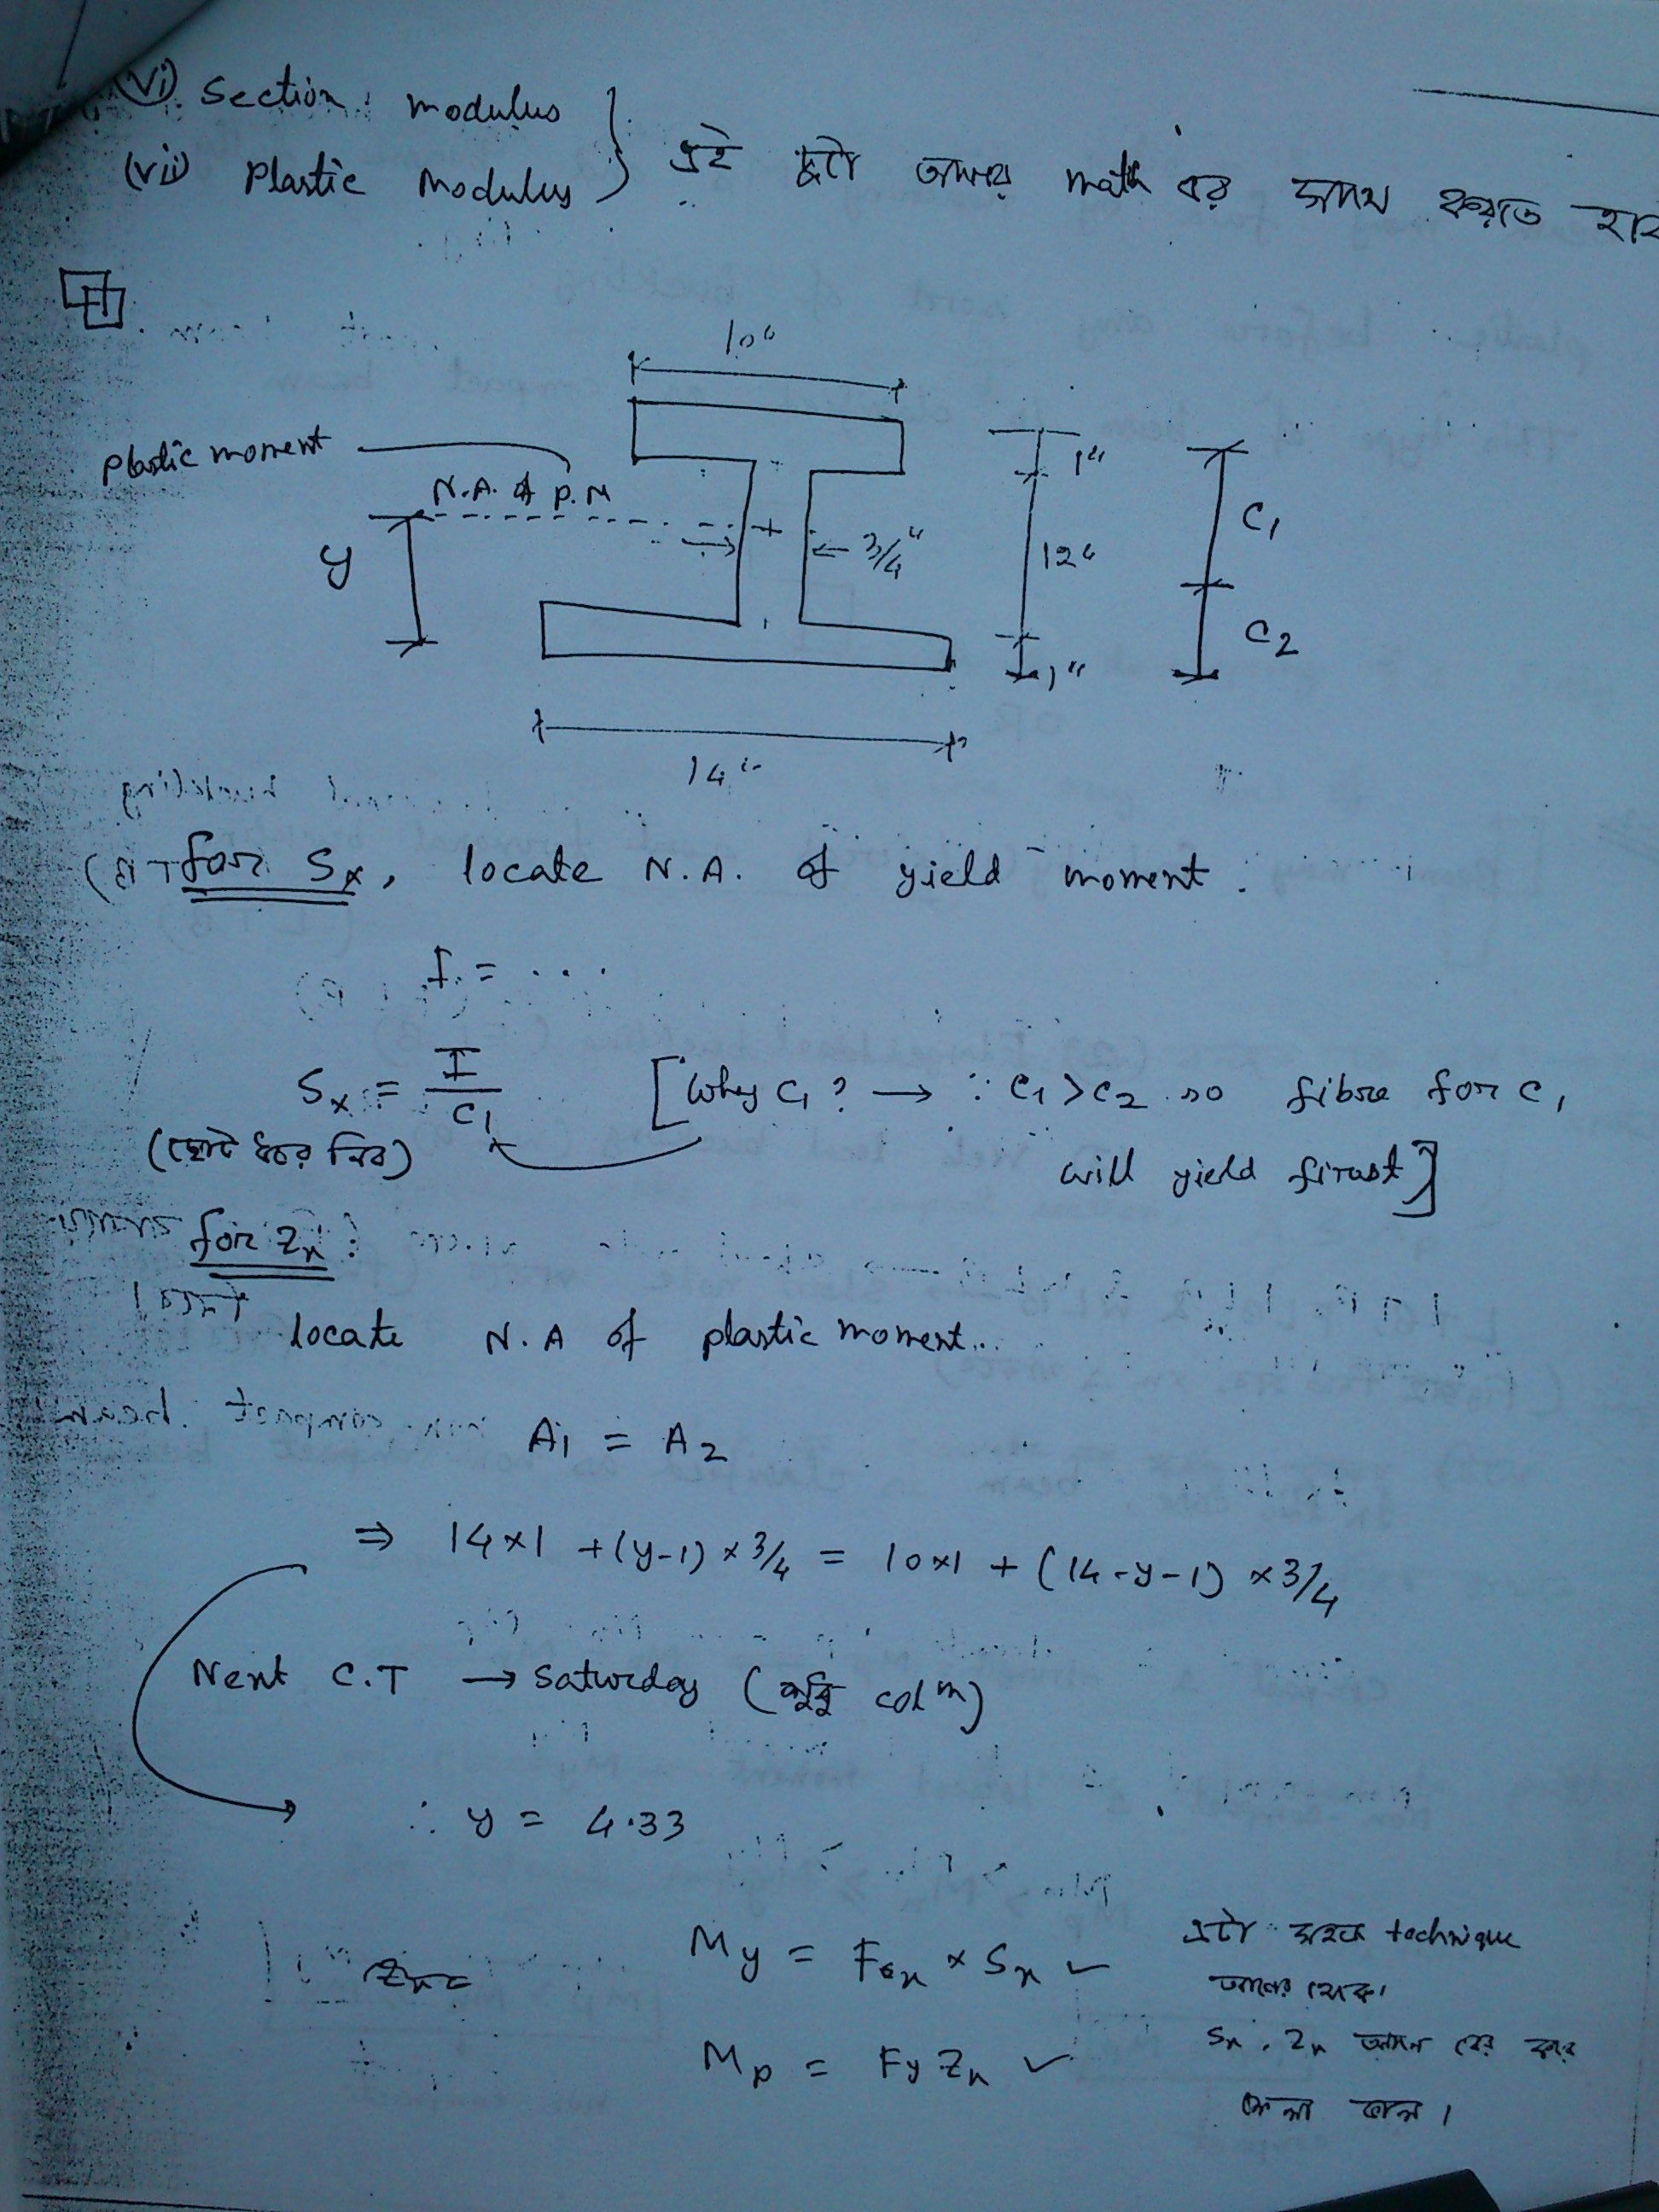 (vi) Section modulus
(vii) Plastic Modulus } এই দুটো আমার math এর সাথে করতে হবে
10"
plastic moment
N.A. of P.M
y
3/4"
1"
12"
1"
C1
C2
14"
for Sx, locate N.A. of yield moment.
I = ....
Sx = I/C1 [Why C1? → ∵ C1 > C2 so fibre for C1
(ছোট ধরে নিব) will yield first]
for Zx:
locate N.A of plastic moment..
A1 = A2
⇒ 14×1 + (y-1) × 3/4 = 10×1 + (14-y-1) × 3/4
Next C.T → Saturday ( colm)
∴ y = 4.33
My = Fex × Sx ✓ এটা সহজ technique
Mp = Fy Zx ✓ Sx, Zx আগে বের করে
ফেলা ভাল।